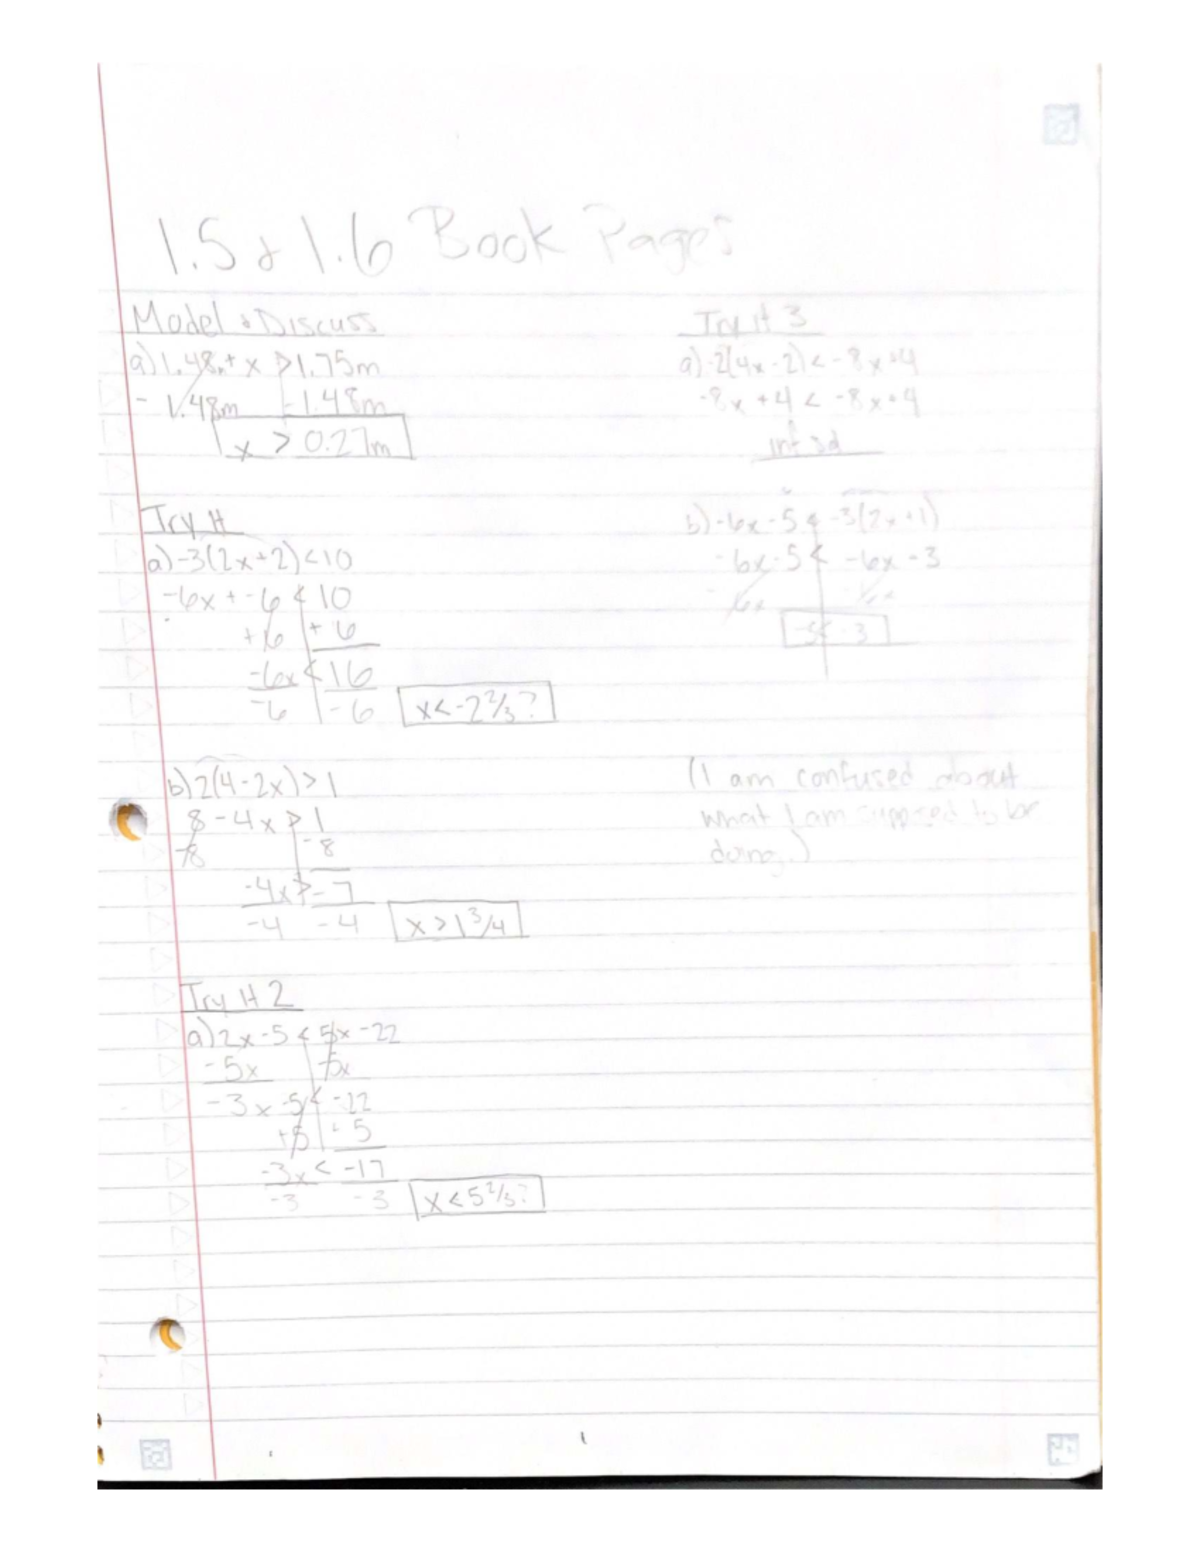 1.5 & 1.6 Book Pages
Model & Discuss
a) 1.48m + x > 1.75m
- 1.48m -1.48m
x > 0.27m
Try It
a) -3(2x+2)<10
-6x + -6 < 10
+6 +6
-6x < 16
-6 -6 x<-2 2/3?
b) 2(4-2x)>1
8-4x > 1
-8 -8
-4x > -7
-4 -4 x > 1 3/4
Try It 2
a) 2x-5 < 5x-22
-5x -5x
-3x -5 < -22
+5 +5
-3x < -17
-3 -3 x<5 2/3?
Try It 3
a) -2(4x-2) < -8x+4
-8x+4 < -8x+4
inf sol
b) -6x-5 < -3(2x+1)
-6x-5 < -6x-3
-5< -3
(I am confused about
what I am supposed to be
doing.)